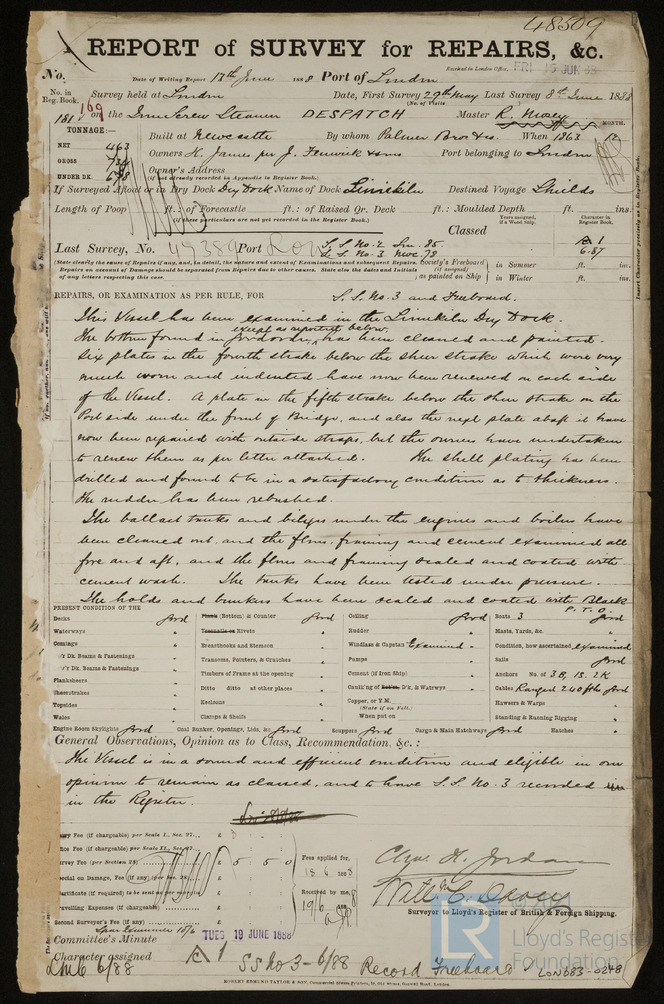 48509
REPORT of SURVEY for REPAIRS, &c.
Received in London Office, FRI 15 JUN 88
No. Date of Writing Report 13th June 1888 Port of London
No. in Reg. Book. Survey held at London Date, First Survey 29th May Last Survey 8th June 1888
(No. of Visits
181 169 on the Iron Screw Steamer DESPATCH Master R. Morey
TONNAGE:— Built at Newcastle By whom Palmer Bros & Co. When 1863 MONTH. 12
NET 463
GROSS 734 Owners H. James per J. Fenwick & Sons Port belonging to London
UNDER DK. 648 Owner's Address
(if not already recorded in Appendix to Register Book.)
If Surveyed Afloat or in Dry Dock Dry Dock Name of Dock Limekiln Destined Voyage Shields
Length of Poop ft.: of Forecastle ft.: of Raised Qr. Deck ft.: Moulded Depth ft. ins.
(if these particulars are not yet recorded in the Register Book.)
Years assigned, if a Wood only. Character in Register Book.
Classed
Last Survey, No. 49389 Port Lon S.S. No. 2 Lon. 85 A 1
S.S. No. 3 Nwc. 78 6.87
(State clearly the cause of Repairs if any, and, in detail, the nature and extent of Examinations and subsequent Repairs.
Repairs on account of Damage should be separated from Repairs due to other causes. State also the dates and Initials
of any letters respecting this case.
Society's Freeboard (if assigned) as painted on Ship in Summer ft. in.
in Winter ft. ins.
Insert Character precisely as in Register Book.
REPAIRS, OR EXAMINATION AS PER RULE, FOR S.S. No. 3 and Freeboard.
This Vessel has been examined in the Limekiln Dry Dock.
except as reported below.
The bottom found in good order, has been cleaned and painted.
Six plates in the fourth strake below the sheer strake which were very
much worn and indented have now been renewed on each side
of the Vessel. A plate in the fifth strake below the sheer strake on the
Port side under the front of Bridge, and also the next plate abaft it have
now been repaired with outside straps, but the owners have undertaken
to renew them as per letter attached. The shell plating has been
drilled and found to be in a satisfactory condition as to thickness.
The rudder has been rebushed.
The ballast tanks and bilges under the engines and boilers have
been cleaned out, and the floors, framing and cement examined all
fore and aft, and the floors and framing scaled and coated with
cement wash. The tanks have been tested under pressure.
The holds and bunkers have been scaled and coated with Black
P.T.O.
PRESENT CONDITION OF THE
Decks Good Planks (Bottom) & Counter Good Ceiling Good Boats 3 Good
Waterways " Treenails or Rivets " Rudder " Masts, Yards, &c. "
Comings " Breasthooks and Stemson " Windlass & Capstan Examined " Condition, how ascertained examined
Dk. Beams & Fastenings " Transoms, Pointers, & Crutches " Pumps " Sails Good
Dk. Beams & Fastenings " Timbers of Frame at the opening " Cement (if Iron Ship) " Anchors No. of 3B, 1S. 2K
Planksheers " Ditto ditto at other places " Caulking of Bottom, D'k, & Watrwys " Cables Ranged 240 fths Good
Sheerstrakes " Keelsons " Copper, or Y.M. Hawsers & Warps "
Topsides " Clamps & Shelfs " (State if on Felt.) Standing & Running Rigging "
Wales " When put on
Engine Room Skylights Good Coal Bunker, Openings, Lids, &c. Good Scuppers Good Cargo & Main Hatchways Good Hatches "
General Observations, Opinion as to Class, Recommendation, &c.:
This Vessel is in a sound and efficient condition and eligible in our
opinion to remain as classed, and to have S.S. No. 3 recorded
in the Register.
Entry Fee (if chargeable) per Scale I., Sec. 27... £
Office Fee (if chargeable) per Scale II., Sec. 27... £
Survey Fee (per Section 28) £ 5 5 0
Special on Damage, Fee (if any) (per Sec. 28) £
Certificate (if required) to be sent as per margin £
Travelling Expenses (if chargeable) £
Second Surveyor's Fee (if any) £
Fees applied for, 18 6 1888
Received by me, 19/6 1888
Chas. H. Jordan
Will. C. Davey
Surveyor to Lloyd's Register of British & Foreign Shipping.
Committee's Minute TUES 19 JUNE 1888
Character assigned A 1
LMC 6/88 SS No 3 - 6/88 Record Freeboard
LON683-0248
ROBERT EDMUND TAYLOR & SON, Commercial Steam Printers, 19, Old Street, Goswell Road, London.
© 2021
LR
Lloyd's Register
Foundation